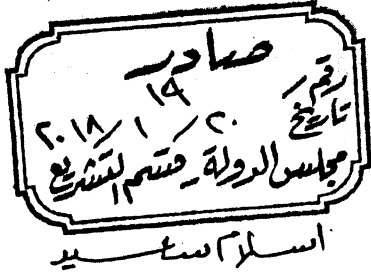 صادر
رقم / ١٩
تاريخ ٢٠ / ١ / ٢٠١٨
مجلس الدولة - قسم التشريع
اسلام سعيد